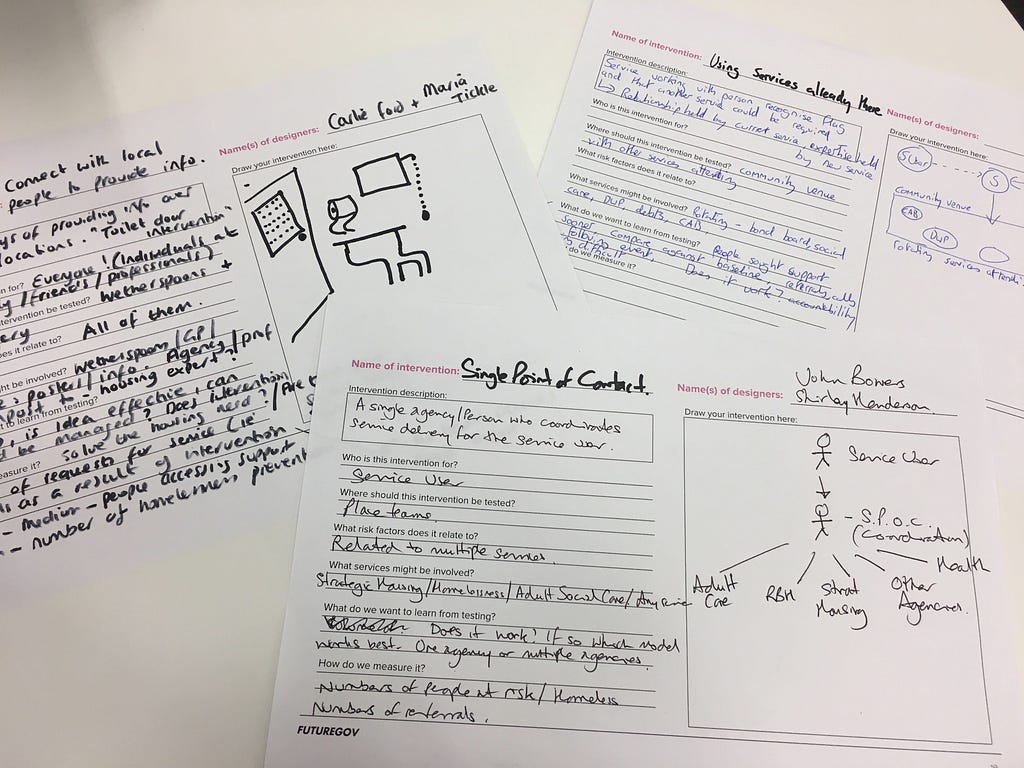 Connect with local
people to provide info.
of providing info over
locations. "Toilet door
intervention"
Everyone! (individuals at
/friends/professionals)
intervention be tested? Wetherspoons +
All of them.
be involved? Wetherspoon/GP/
poster/info. Agency/Prof
"housing expert"?
to learn from testing?
is idea effective, can
be managed? Does intervention
solve the housing need?
measure it?
of requests for service
as a result of intervention
- medium - people accessing support
- number of homelessness
Name(s) of designers: Carlie Ford + Maria
Tickle
Draw your intervention here:
Name of intervention: Using Services already there
Intervention description:
Service working with person recognise flag
and that another service could be required
↳ Relationship held by current service, expertise held
by new service
Who is this intervention for?
Where should this intervention be tested? Community venue
with other services attending
What risk factors does it relate to?
What services might be involved? Rotating - bond board, social
care, DWP, debts, CAB
What do we want to learn from testing? People sought support
sooner, compare against baseline
following event.
Does it work? accountability
do we measure it?
is difficult
Name(s) of designers:
Draw your intervention here:
S User
S
Community venue
CAB
DWP
rotating services attending
Name of intervention: Single Point of Contact.
Intervention description:
A single agency/Person who coordinates
service delivery for the service user.
Who is this intervention for?
Service User
Where should this intervention be tested?
Place teams.
What risk factors does it relate to?
Related to multiple services.
What services might be involved?
Strategic Housing/Homelessness/Adult Social Care/Any service
What do we want to learn from testing?
Does it work? If so which model
works best. One agency or multiple agencies.
How do we measure it?
Numbers of people at risk/Homeless
Numbers of referrals.
FUTUREGOV
Name(s) of designers: John Bowers
Shirley Henderson
Draw your intervention here:
Service User
- S.P.O.C.
(Coordination)
Adult
Care
RBH
Strat
Housing
Other
Agencies.
Health